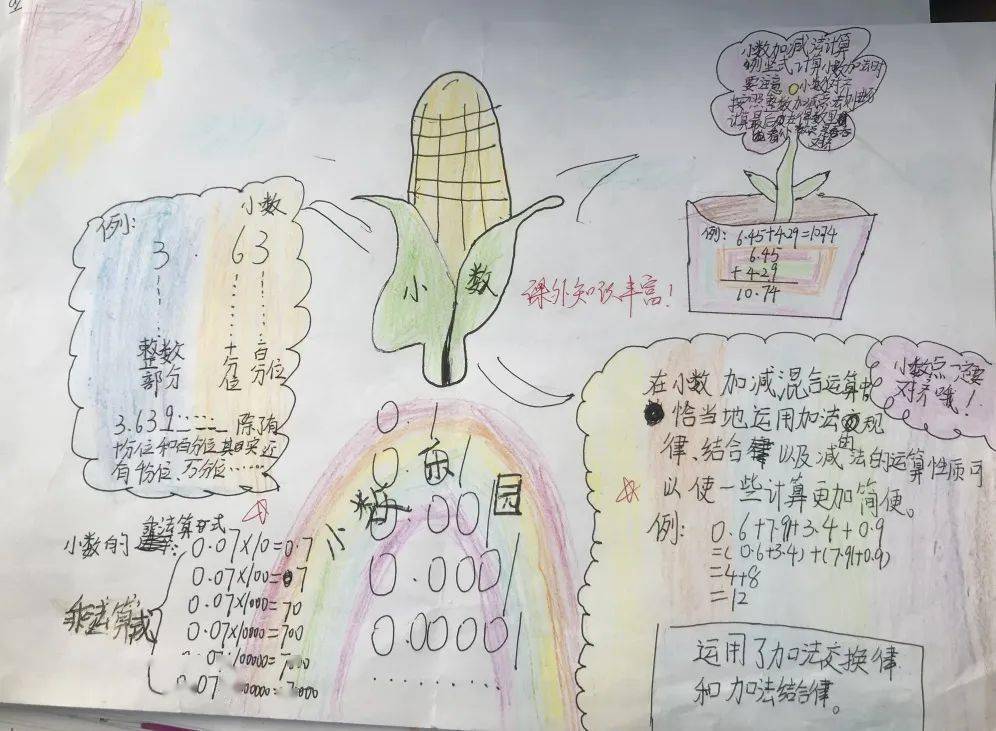 小数加减法计算
要注意
小数
例: 6.45+4.29=10.74
6.45
+ 4.29
10.74
例:
小数
3. 63
整数
部分
十分位
百分位
3.639…… 除了有
十分位和百分位其实还
有千份位、万分位……
小数
课外知识丰富!
小数点一定要
对齐哦!
在小数加减混合运算中
恰当地运用加法的规
律、结合律以及减法的运算性质可
以使一些计算更加简便。
例: 0.6+7.9+3.4+0.9
=(0.6+3.4)+(7.9+0.9)
=4+8
=12
运用了加法交换律
和加法结合律。
小数乐园
0.1
0.001
0.0001
0.00001
.........
小数的乘法算式:
乘法算式
0.07×10=0.7
0.07×100=7
0.07×1000=70
0.07×10000=700